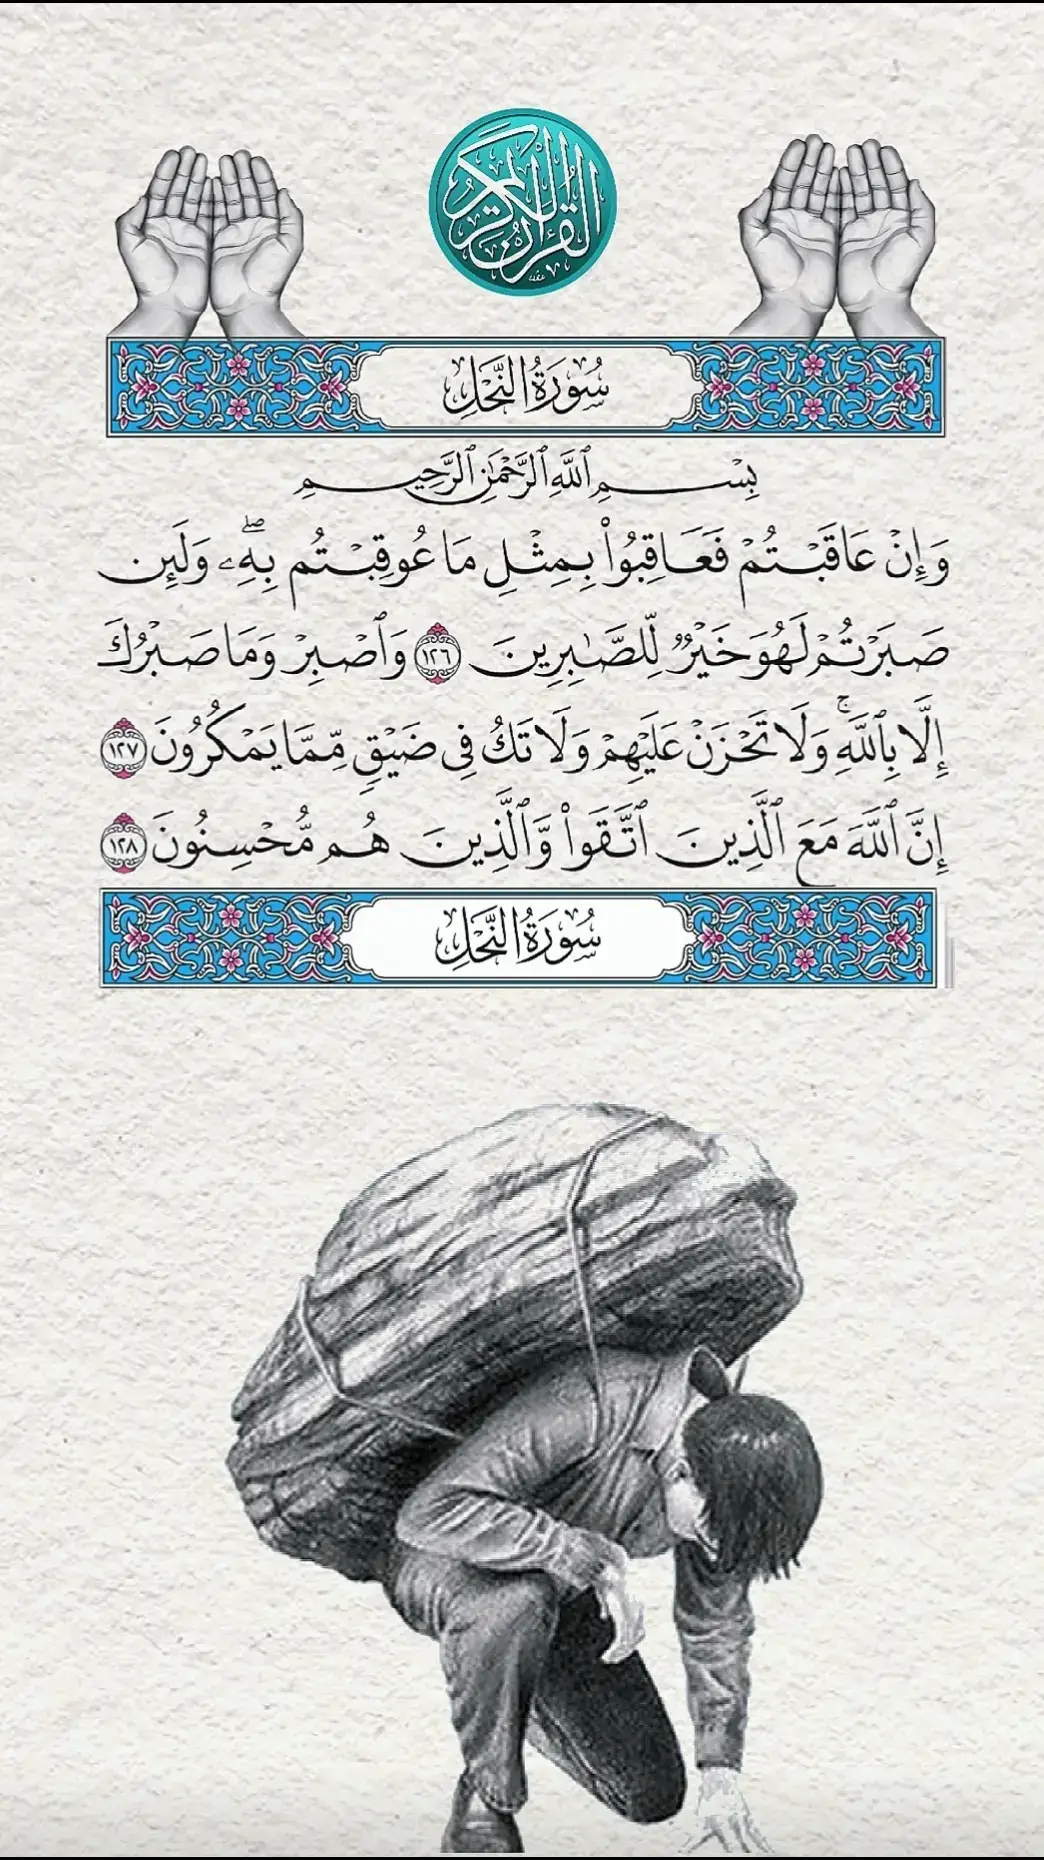 القرآن الكريم
سُورَةُ النَّحْلِ
بِسْمِ ٱللَّهِ ٱلرَّحْمَٰنِ ٱلرَّحِيمِ
وَإِنْ عَاقَبْتُمْ فَعَاقِبُوا۟ بِمِثْلِ مَا عُوقِبْتُم بِهِۦۖ وَلَئِن
صَبَرْتُمْ لَهُوَ خَيْرٌۭ لِّلصَّٰبِرِينَ ١٢٦ وَٱصْبِرْ وَمَا صَبْرُكَ
إِلَّا بِٱللَّهِۚ وَلَا تَحْزَنْ عَلَيْهِمْ وَلَا تَكُ فِى ضَيْقٍۢ مِّمَّا يَمْكُرُونَ ١٢٧
إِنَّ ٱللَّهَ مَعَ ٱلَّذِينَ ٱتَّقَوا۟ وَّٱلَّذِينَ هُم مُّحْسِنُونَ ١٢٨
سُورَةُ النَّحْلِ